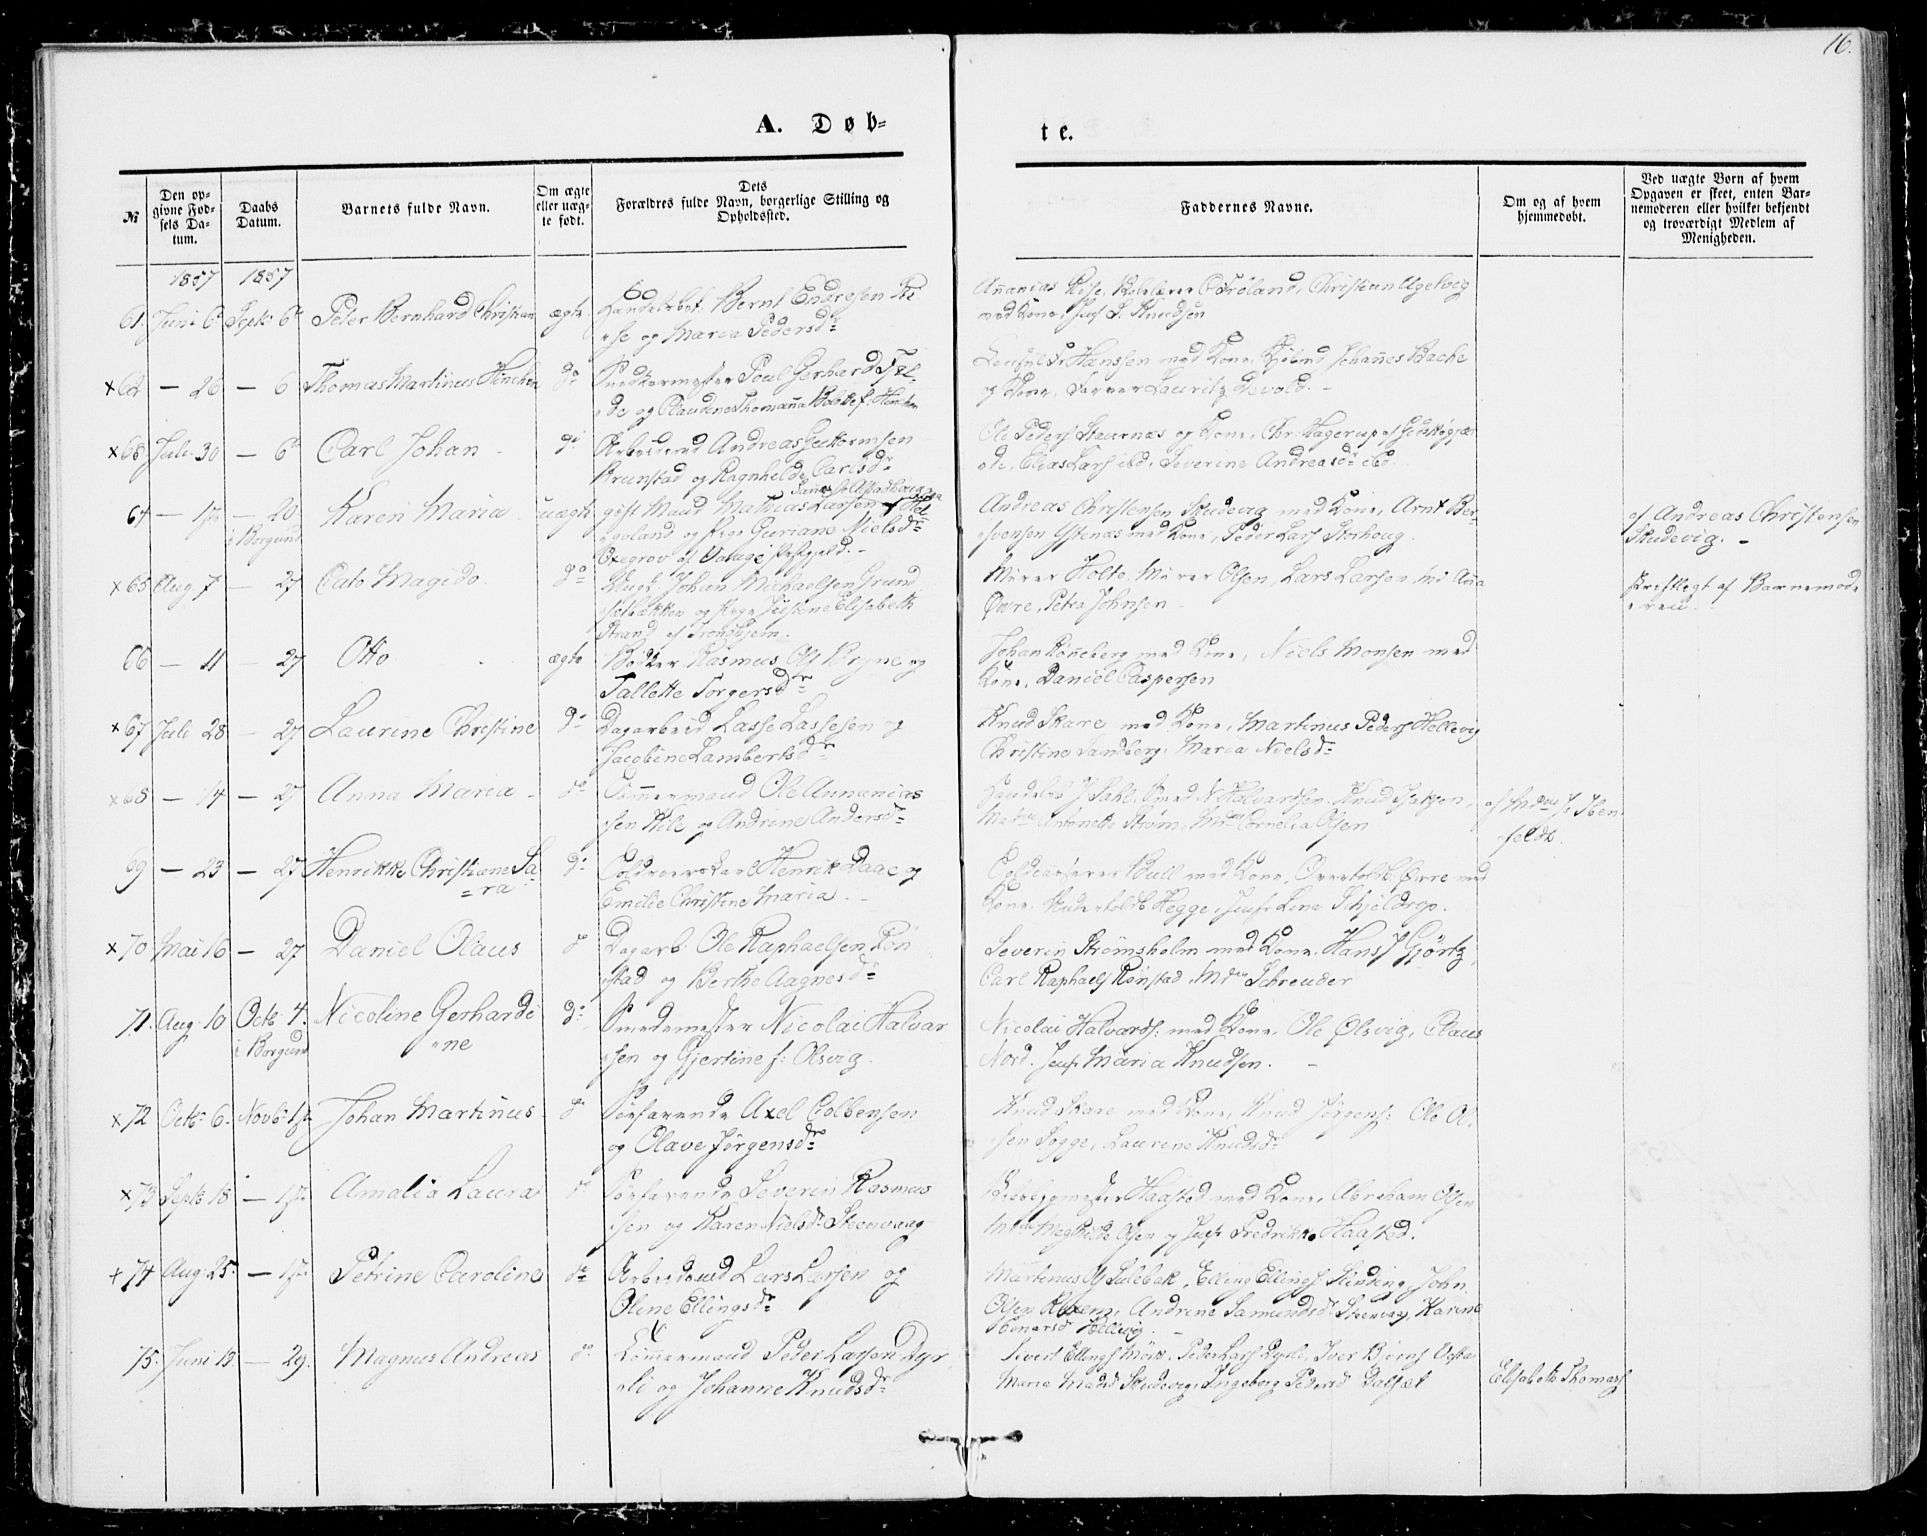 16.
A. Døb-
te.
№
Den op-
givne Fød-
sels Da-
tum.
Daabs
Datum.
Barnets fulde Navn.
Om ægte
eller uæg-
te født.
Dets
Forældres fulde Navn, borgerlige Stilling og
Opholdssted.
Faddernes Navne.
Om og af hvem
hjemmedøbt.
Ved uægte Børn af hvem
Opgaven er skeet, enten Bar-
nemoderen eller hvilket bekjendt
og troværdigt Medlem af
Menigheden.
1857 1857
61. Juni 6 Septb 6 Peter Bernhard Christian ægte Handelsbet. Bernt Endresen Ri
se og Maria Pedersdr
Ananias Rise, Christian Agelvig
med Kone, Juf S. Knudsen
x62 — 26 — 6 Thomas Martinus Hinchen do Snedkermester Poul Gerhard
de og Claudine Thomanna Bolette f: Hinchen
Hanssen med Kone, Johannes Bache
og Kone, Farver Lauritz Devold. -
x63 Juli 30 — 6 Carl Johan do Arbeidsmd Andreas Guttormsen
Brunstad og Ragnhilde Carlsdr
Ole Peders Staurnæs og Kone, Chr. Hagerup
de, Elias Lars ibd, Severine Andreasdr ibd
64 — 17 — 20 Karen Maria uægte gift Mand Mathias Larsen
i Borgund
goland og Pige Guriane Nielsdr
Præstgjeld. -
Andreas Christensen Skudevig med Kone, Arnt Ber-
svensen Ystenæs med Kone, Peder Lars Storhoug.
af Andreas Christensen
Skudevig. -
x65 Aug 7 — 27 Cato Magido do Ungk. Johan Michaelsen Grund
sætbakken og Pige Justine Elisabeth
Strand af Trondhjem.
Murer Holte, Murer Olsen, Lars Larsen, Anna
Øvre, Petra Johnsen
skriftligt af Barnemode
ren.
66 — 11 — 27 Otto ægte Bødker Rasmus Ols Bryne og
Tallette Torgersdr
Johan Röneberg med Kone, Niels Monsen med
Kone, Daniel Caspersen
x67 Juli 28 — 27 Laurine Christine do Dagarbeid Lasse Lassesen og
Jacobine Lambertsdr
Knud Skare med Kone, Martinus Peders Hellevig
Christine Sandberg, Maria Nielsdr
x68 — 14 — 27 Anna Maria do Tømmermand Ole Annanias
sen Kile og Andrine Andersdr
J Dahl, Smed N Halvardsen, Knud Isaksen,
Antonette Strøm, Cornelia Olsen
af J. Iben
feldt.
69 — 23 — 27 Henrikke Christiane Sa-
ra
do Toldroerskarl Henrik Daae og
Emilie Christine Maria.
Toldcasserer Bull med Kone, Øvre med
Kone, Hegge, Jufr Lina Schjelderup.
x70 Mai 16 — 27 Daniel Olaus do Dagarb Ole Raphaelsen Røn
stad og Berthe Aagnesdr
Severin Strømsholm med Kone, Hans J Gjørtz,
Carl Raphaels Rønstad, Schreuder
71. Aug 10 Octb 4. Nicoline Gerhardi
i Borgund
ne
do Smedemester Nicolai Halvar
sen og Gjertine f: Olsvig.
Nicolai Halvards: med Kone, Ole Ølsvig, Claus
Nord. Juf. Maria Knudsen. -
x72 Octb 6. Novb 1st Johan Martinus do Søfarende Axel Colbensen
og Olave Jørgensdr
Knud Skare med Kone, Knud Jørgens: Ole Ol-
sen Sogge, Laurine Knudsdr
x73 Septb 18 — 1st Amalia Laura do Søfarende Severin Rasmus
sen og Karen Nielsdr Steenvaag
Haasted med Kone, Abraham Olsen
Olsen og Juf. Fredrikke Haasted.
+74 Aug 25. — 1st Petrine Caroline do Arbeidsmd Lars Larsen og
Oline Ellingsdr
Martinus Sulebak, Elling Ellings Kinding, John
Olsen, Andrine Samundsdr Steenvaag, Karine
Hellevig. -
75. Juni 13 — 29. Magnus Andreas do Tømmermand Peder Larsen Dyr
li og Johanne Knudsdr
Sivert Ellings Mørk, Peder Lars Dyrli, Iver Børs
Maria Skudevig, Ingeborg Pedersd Dalsæt
Elisabeth Thomasd